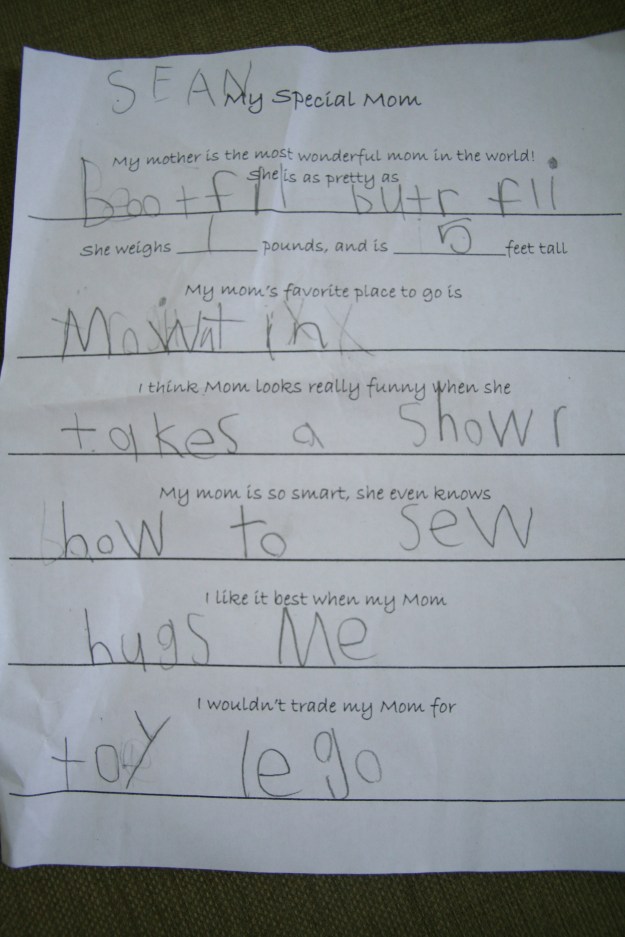 SEAN
My Special Mom
My mother is the most wonderful mom in the world!
She is as pretty as
bootfll butr fli
She weighs 1 pounds, and is 5 feet tall
My mom's favorite place to go is
I think Mom looks really funny when she
takes a showr
My mom is so smart, she even knows
how to sew
I like it best when my Mom
hugs Me
I wouldn't trade my Mom for
toy lego